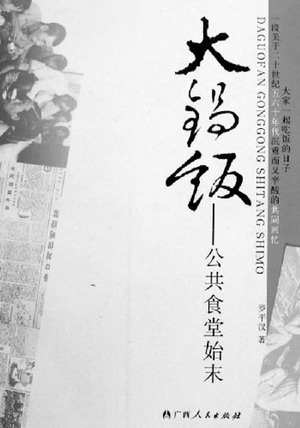 大家一起吃饭的日子
一段关于二十世纪五六十年代沉重而又辛酸的共同回忆
DAGUOFAN GONGGONG SHITANG SHIMO
大锅饭
——公共食堂始末
罗平汉 著
广西人民出版社